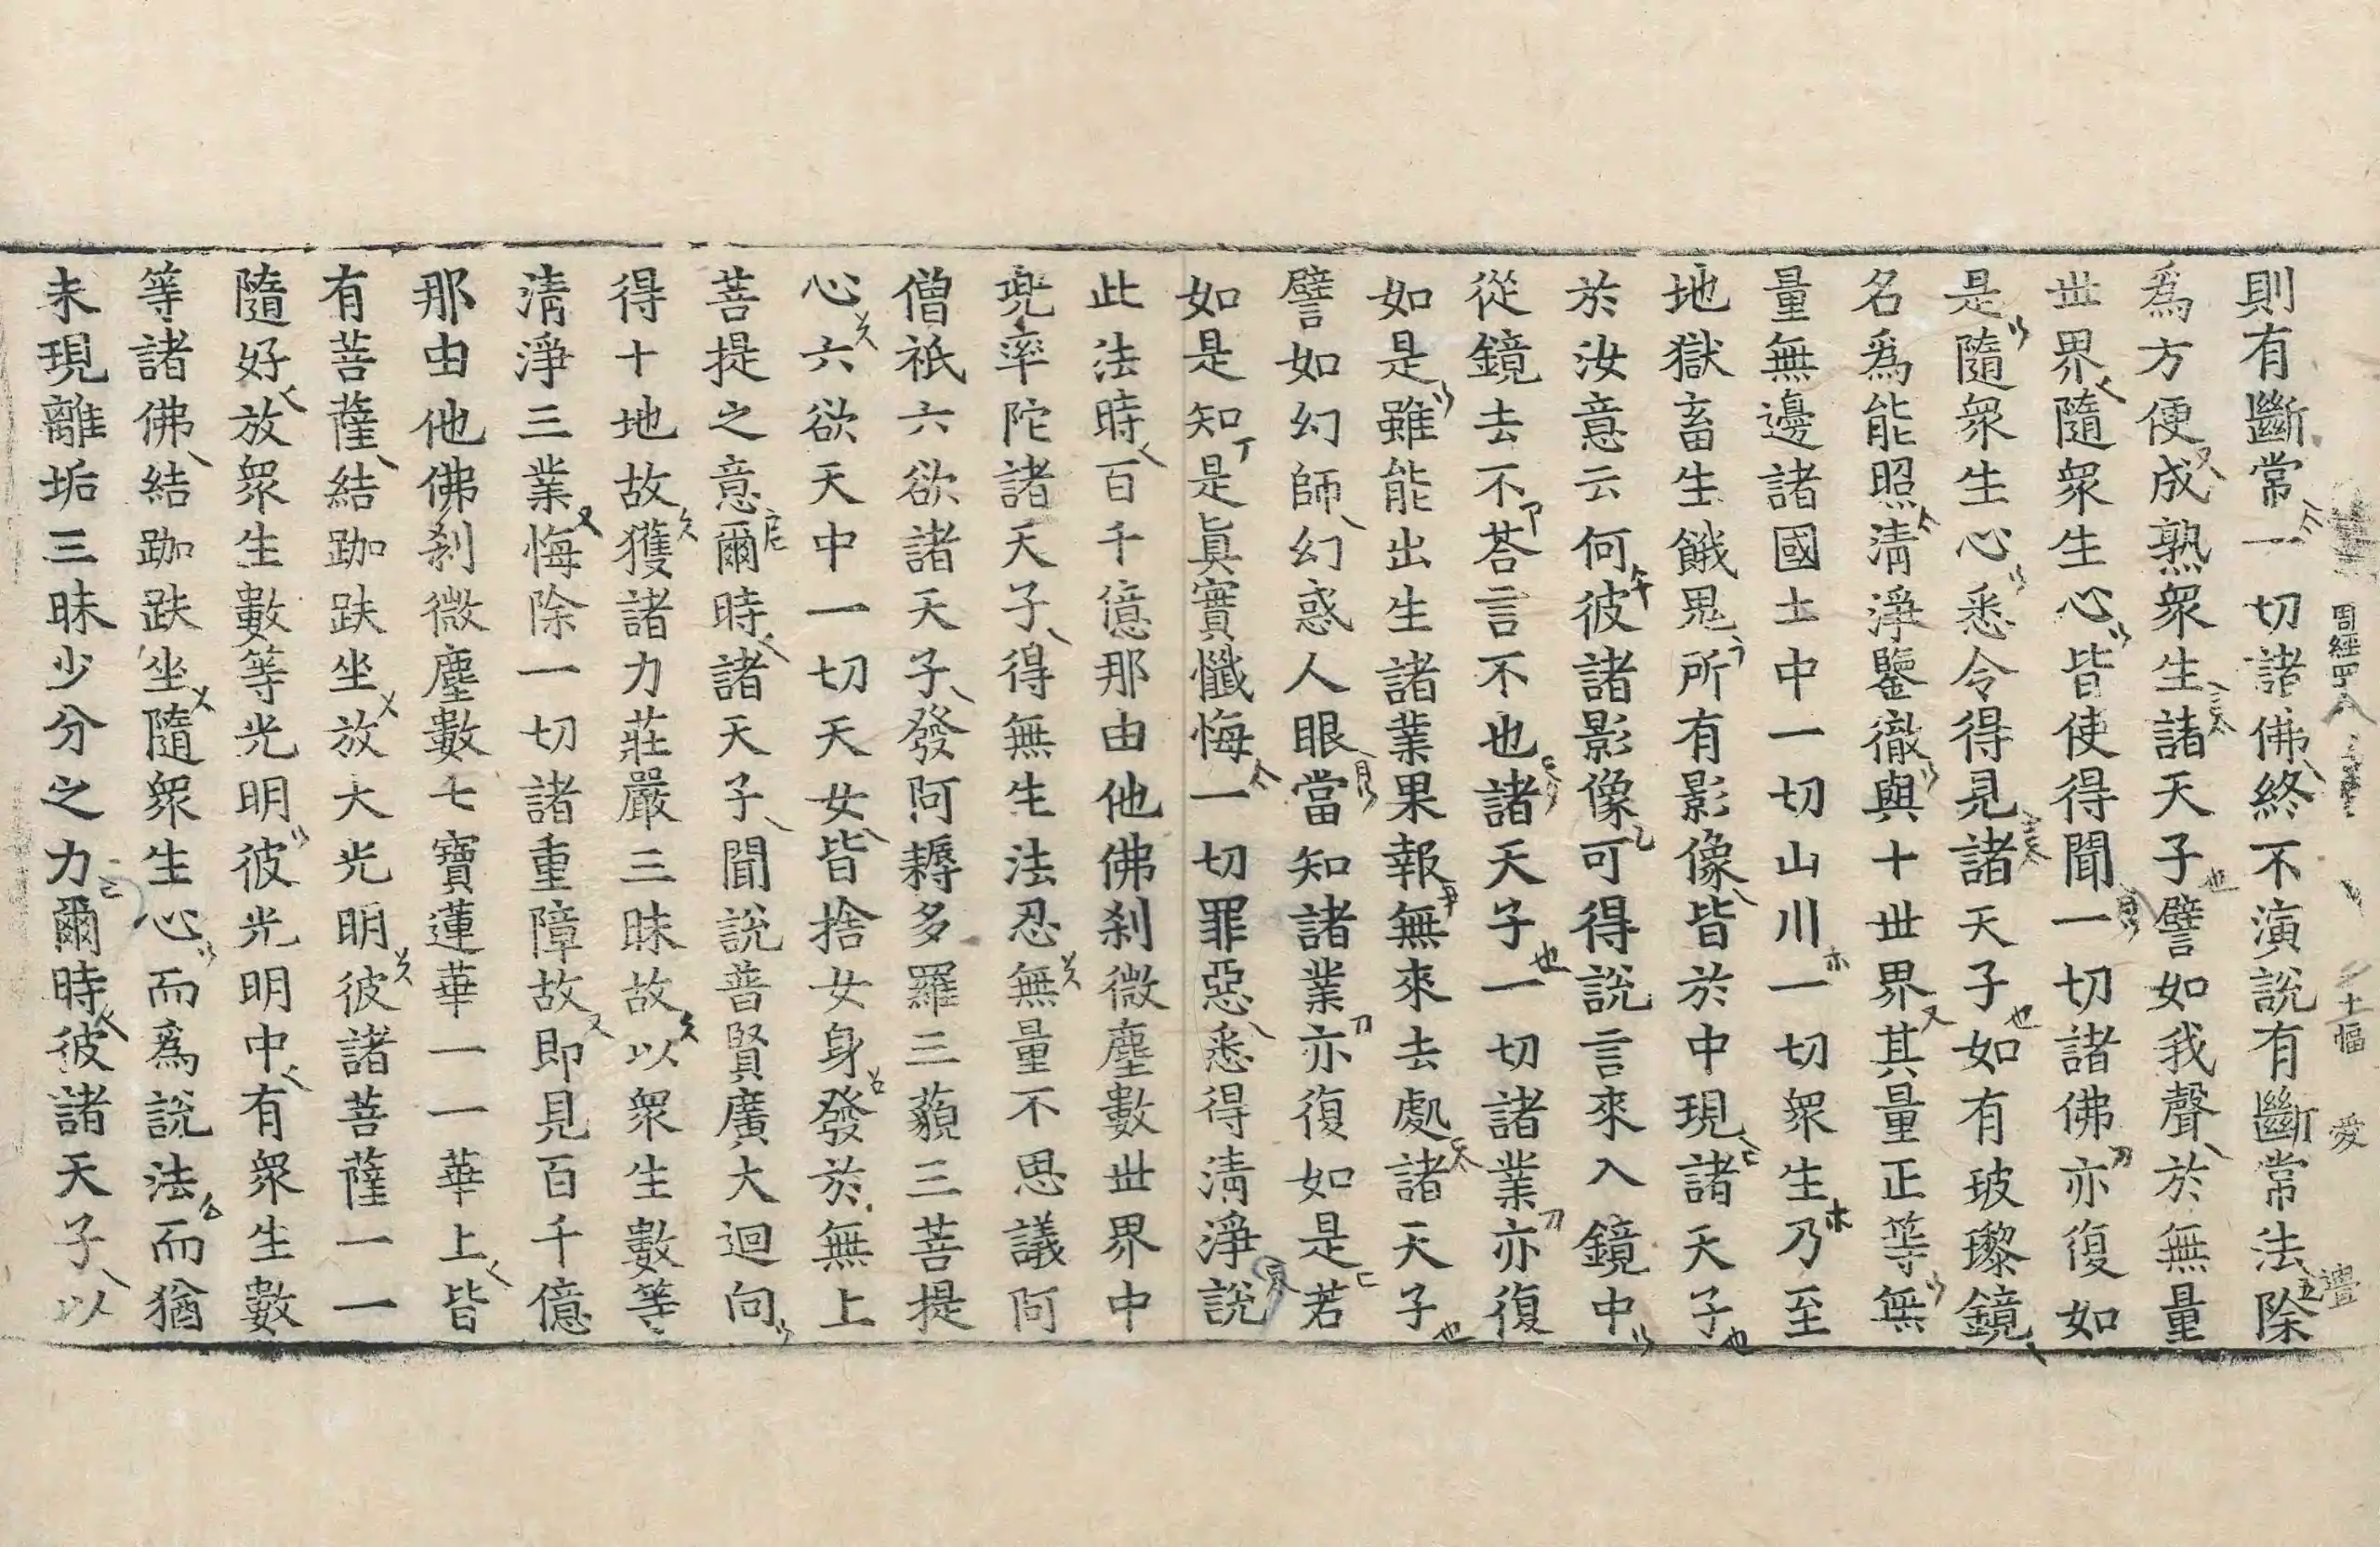 則有斷常一切諸佛終不演說有斷常法除
為方便成熟衆生諸天子譬如我聲於無量
丗界隨衆生心皆使得聞一切諸佛亦復如
是隨衆生心悉令得見諸天子如有玻瓈鏡
名為能照清淨鑒徹與十丗界其量正等無
量無邊諸國土中一切山川一切衆生乃至
地獄畜生餓鬼所有影像皆於中現諸天子
於汝意云何彼諸影像可得說言來入鏡中
從鏡去不荅言不也諸天子一切諸業亦復
如是雖能出生諸業果報無來去處諸天子
譬如幻師幻惑人眼當知諸業亦復如是若
如是知是眞實懺悔一切罪惡悉得清淨說
此法時百千億那由他佛刹微塵數丗界中
兜率陀諸天子得無生法忍無量不思議阿
僧祇六欲諸天子發阿耨多羅三藐三菩提
心六欲天中一切天女皆捨女身發於無上
菩提之意爾時諸天子聞說普賢廣大迴向
得十地故獲諸力莊嚴三昧故以衆生數等
清淨三業悔除一切諸重障故即見百千億
那由他佛刹微塵數七寶蓮華一一華上皆
有菩薩結跏趺坐放大光明彼諸菩薩一一
隨好放衆生數等光明彼光明中有衆生數
等諸佛結跏趺坐隨衆生心而為說法而猶
未現離垢三昧少分之力爾時彼諸天子以